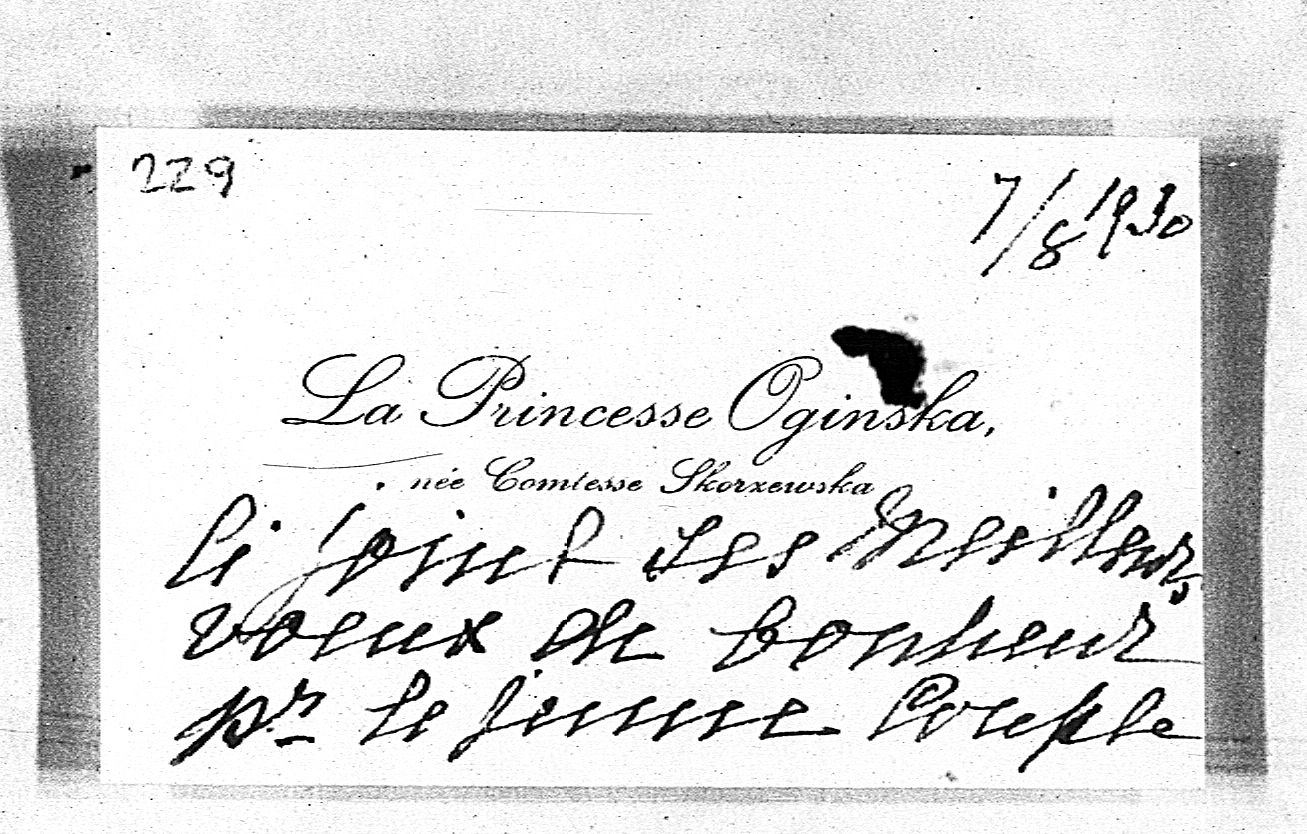 229
7/8 1930
La Princesse Oginska,
née Comtesse Skorzewska
Ci joint ses Meilleurs
voeux de bonheur
pr le jeune Couple